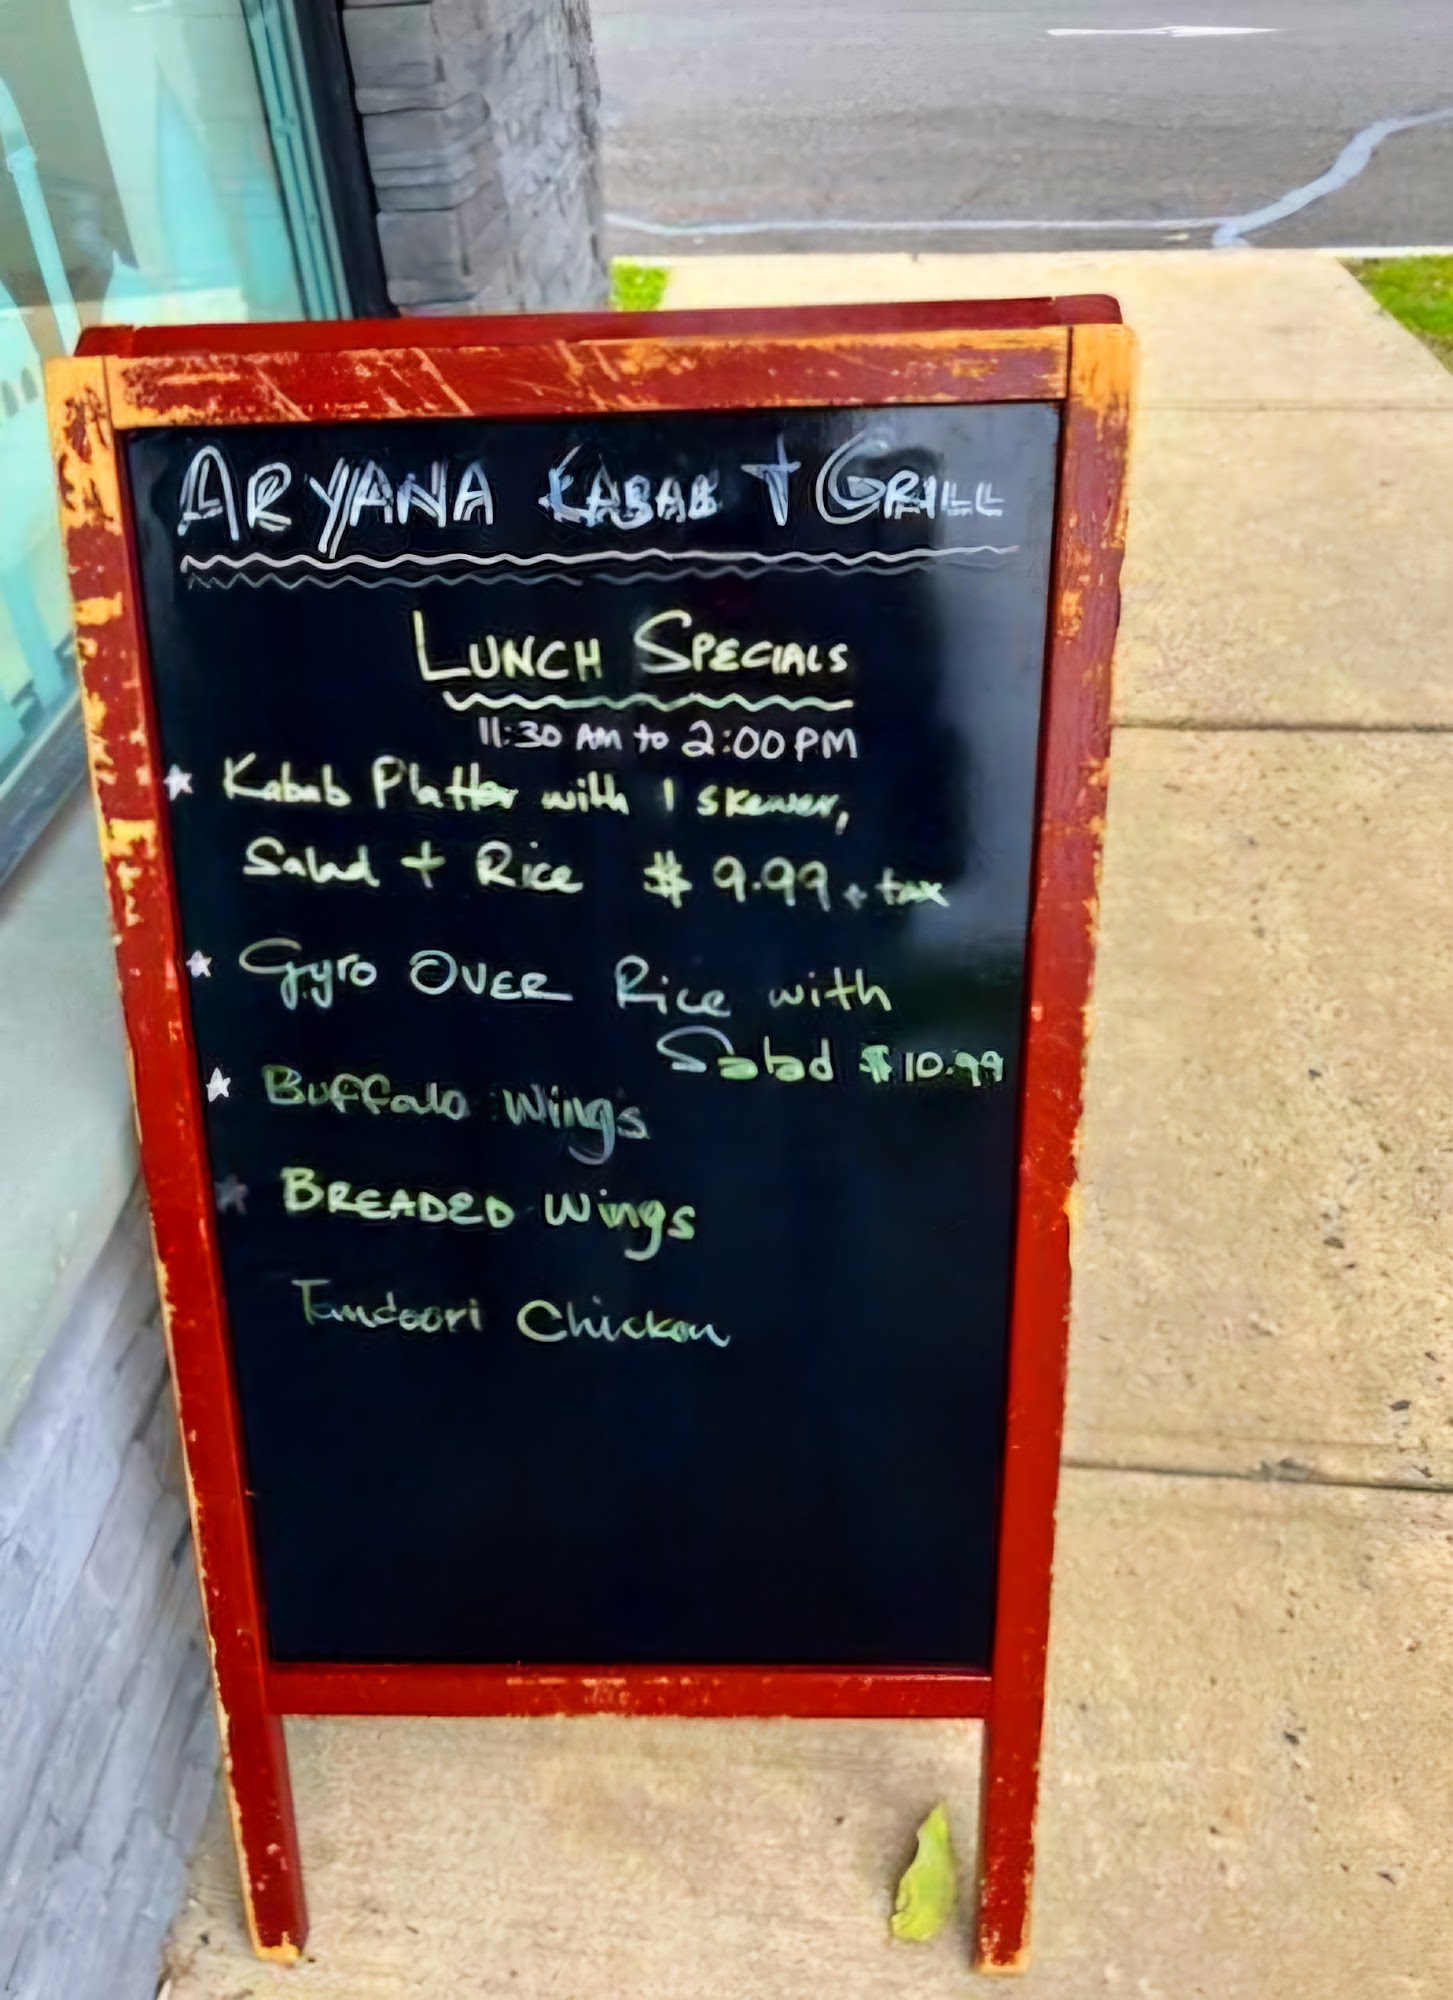 ARYANA KABAB + GRILL
LUNCH SPECIALS
11:30 AM to 2:00 PM
Kabab Platter with 1 skewer,
Salad + Rice $ 9.99 + tax
Gyro OVER Rice with
Salad $10.99
Buffalo Wings
BREADED Wings
Tandoori Chicken